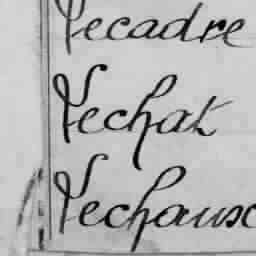 Lecadre
Lechat
Lechaus